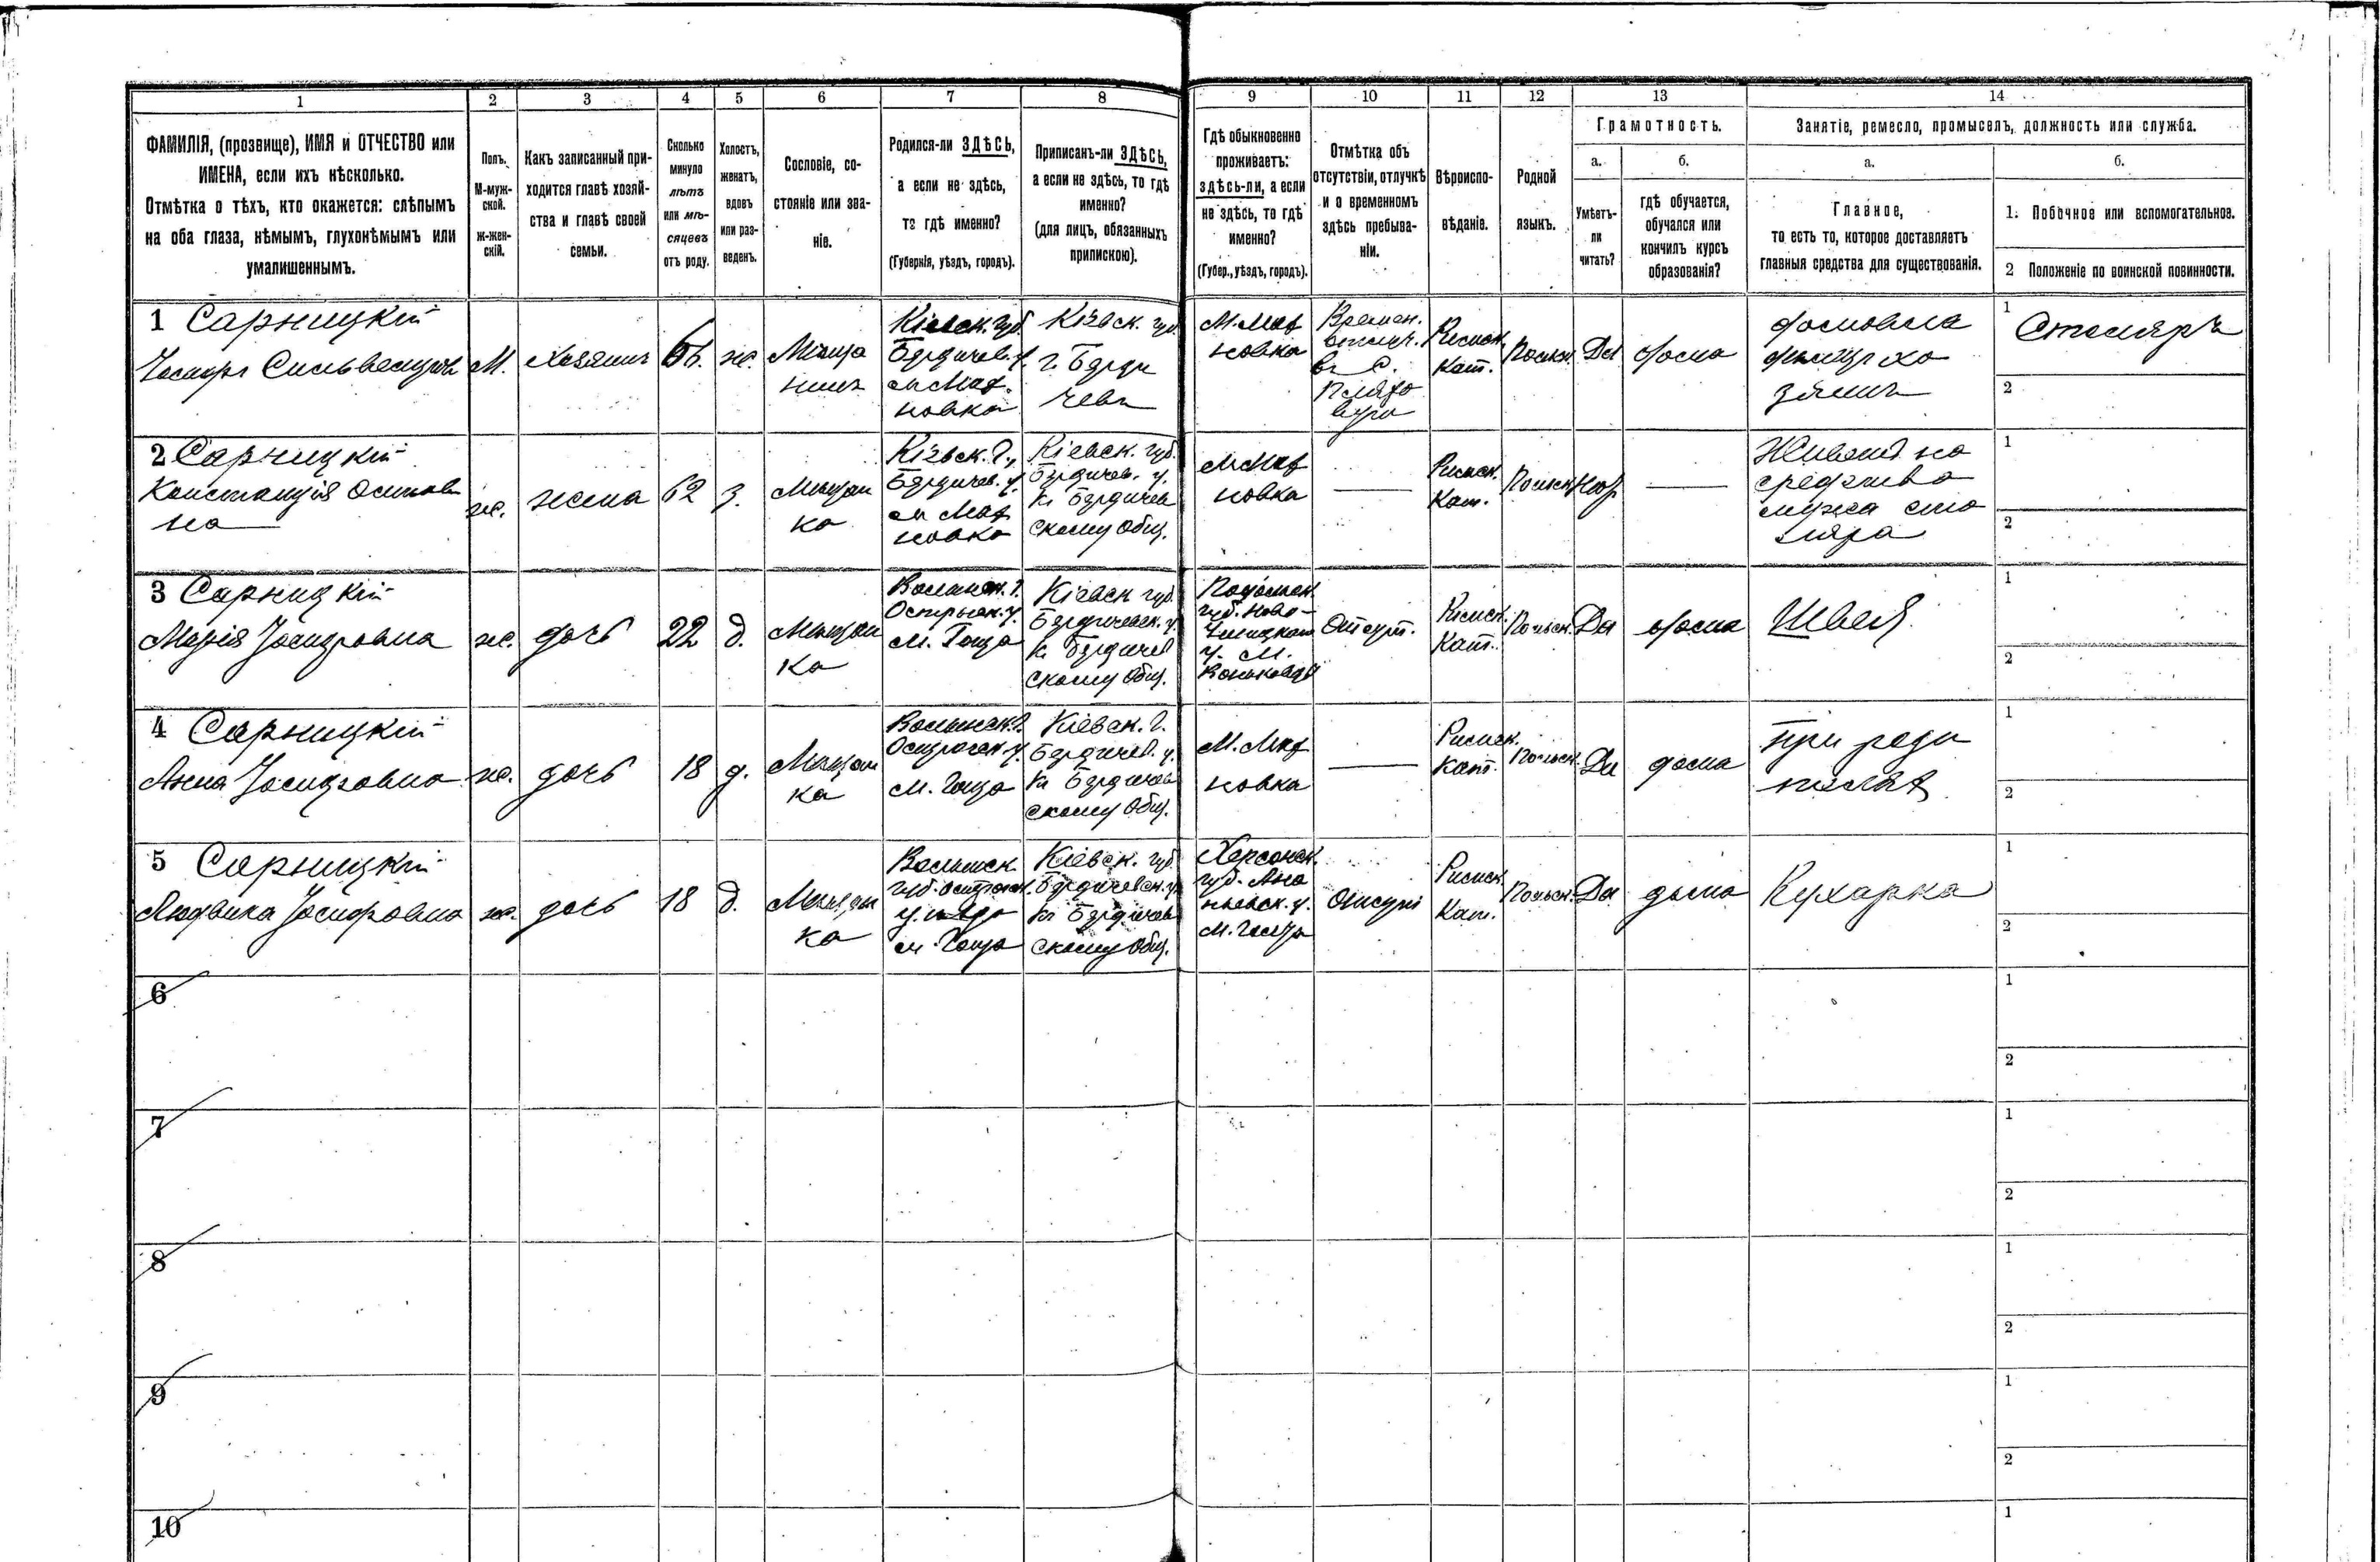 1 2 3 4 5 6 7 8 9 10 11 12 13 14
ФАМИЛІЯ, (прозвище), ИМЯ и ОТЧЕСТВО или
ИМЕНА, если ихъ нѣсколько.
Отмѣтка о тѣхъ, кто окажется: слѣпымъ
на оба глаза, нѣмымъ, глухонѣмымъ или
умалишеннымъ.
Полъ.
М-муж-
ской.
Ж-жен-
скій.
Какъ записанный при-
ходится главѣ хозяй-
ства и главѣ своей
семьи.
Сколько
минуло
лѣтъ
или мѣ-
сяцевъ
отъ роду.
Холостъ,
женатъ,
вдовъ
или раз-
веденъ.
Сословіе, со-
стояніе или зва-
ніе.
Родился-ли ЗДѢСЬ,
а если не здѣсь,
то гдѣ именно?
(Губернія, уѣздъ, городъ).
Приписанъ-ли ЗДѢСЬ,
а если не здѣсь, то гдѣ
именно?
(для лицъ, обязанныхъ
припискою).
Гдѣ обыкновенно
проживаетъ:
здѣсь-ли, а если
не здѣсь, то гдѣ
именно?
(Губер., уѣздъ, городъ).
Отмѣтка объ
отсутствіи, отлучкѣ
и о временномъ
здѣсь пребыва-
ніи.
Вѣроиспо-
вѣданіе.
Родной
языкъ.
Грамотность.
а.
Умѣетъ-
ли
читать?
б.
гдѣ обучается,
обучался или
кончилъ курсъ
образованія?
Занятіе, ремесло, промыселъ, должность или служба.
а.
Главное,
то есть то, которое доставляетъ
главныя средства для существованія.
б.
1. Побочное или вспомогательное.
2 Положеніе по воинской повинности.
1 Сарницкій
М.
Хозяинъ
ж.
Мѣща
нинъ
Кіевск. губ.
Бердичев. у.
м. Мах
новка
Кіевск. губ.
г. Берди
чевъ
М. Мах
новка
Времен.
отлуч.
въ с.
Римск.
Кат.
Польск.
Да
дома
хо
зяинъ
1 Столяръ
2
2 Сарницкій
Констанція Осипов
на
ж.
жена
62
з.
Мѣщан
ка
Кіевск. г.,
Бердичев. у.
м. Мах
новка
Кіевск. губ.
Бердичев. у.
къ Бердичев
скому общ.
м. Мах
новка
—
Римск.
Кат.
Польск.
—
Живетъ на
средства
мужа сто
ляра
1
2
3 Сарницкій
Марія Іосифовна
ж.
дочь
22
д.
Мѣщан
ка
Волынск. г.
Острожск. у.
м. Гоща
Кіевск. губ.
Бердичевск. у.
къ Бердичев
скому общ.
Подольск.
губ. Ново-
Ушицкаго
у. м.
Отсут.
Римск.
Кат.
Польск.
Да
дома
Швея
1
2
4 Сарницкій
Анна Іосифовна
ж.
дочь
18
д.
Мѣщан
ка
Волынск. г.
Острожск. у.
м. Гоща
Кіевск. г.
Бердичев. у.
къ Бердичев
скому общ.
М. Мах
новка
—
Римск.
Кат.
Польск.
Да
дома
При роди
теляхъ
1
2
5 Сарницкій
Людвика Іосифовна
ж.
дочь
18
д.
Мѣщан
ка
Волынск.
губ. Острожск.
м. Гоща
Кіевск. губ.
Бердичевск. у.
къ Бердичев
скому общ.
Херсонск.
губ. Ана
ньевск. у.
Отсут.
Римск.
Кат.
Польск.
Да
дома
Кухарка
1
2
6
1
2
7
1
2
8
1
2
9
1
2
10
1